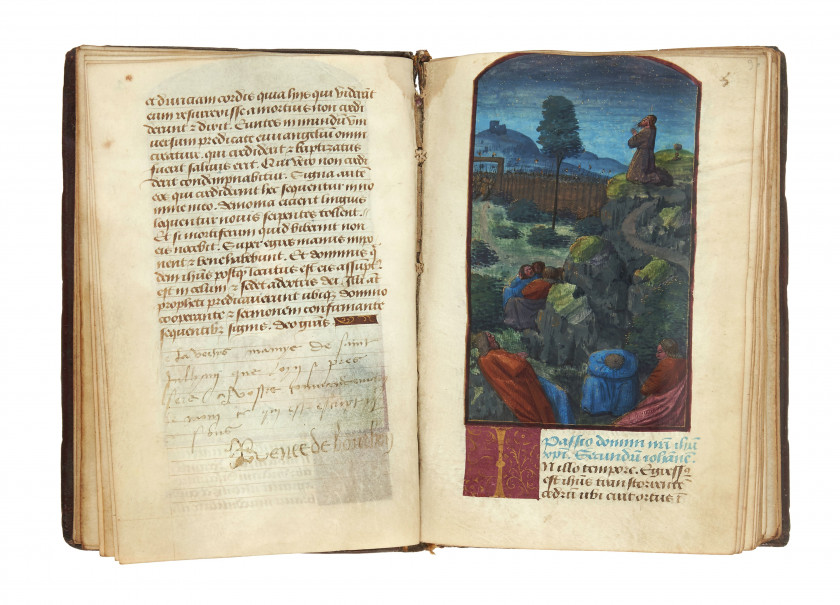 et duriciam cordis quia hiis qui viderāt
eum resurrexisse a mortuis non credi
derunt & dixit. Euntes in mundū vni
versum predicate euuangeliū omni
creature. qui crediderit & baptizatus
fuerit saluus erit. Qui vero non credi
derit condempnabitur. Signa autē
eos qui crediderint hec sequentur in no
mine meo. demonia eicient linguis
loquentur nouis serpentes tollent.
Et si mortiferum quid biberint non
eis nocebit. Super egros manus impo
nēt & bene habebunt. Et dominus q̄
dem ihūs postq̄ locutus est eis assūpt'
est in celum & sedet a dextris dei. Illi aūt
prophecti predicauerunt vbiq̄. domino
cooperante & sermonem confirmante
sequentibꝰ signis. deo grās
de saint
que pres
Vostre
Renee de bourbon
5
Passio domini nr̄i ihū
xpī. Secundū iohānē.
N illo tempore. Egress'
est ihūs trans torrentē
cedrō ubi erat ortus ī